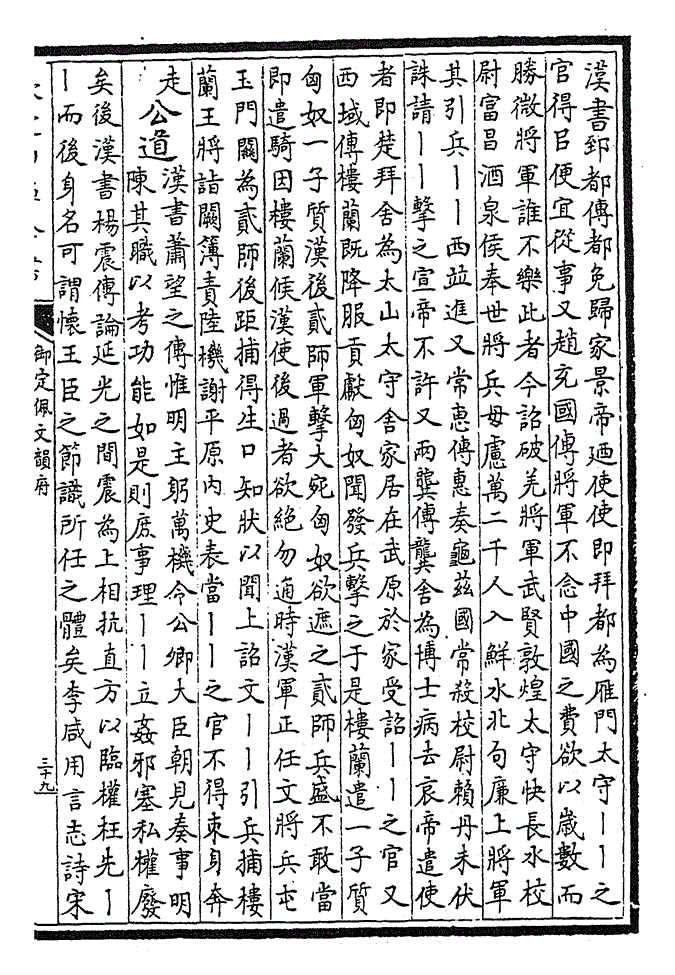 漢書郅都傳都免歸家景帝廼使使即拜都為雁門太守丨丨之
官得㠯便宜從事又趙充國傳將軍不念中國之費欲以歲數而
勝微將軍誰不樂此者今詔破羌將軍武賢敦煌太守快長水校
尉富昌酒泉侯奉世將兵毋慮萬二千人入鮮水北句廉上將軍
其引兵丨丨西並進又常惠傳惠奏龜茲國常殺校尉賴丹未伏
誅請丨丨擊之宣帝不許又兩龔傳龔舍為博士病去哀帝遣使
者即楚拜舍為太山太守舍家居在武原於家受詔丨丨之官又
西域傳樓蘭既降服貢獻匈奴聞發兵擊之于是樓蘭遣一子質
匈奴一子質漢後貳師軍擊大宛匈奴欲遮之貳師兵盛不敢當
即遣騎因樓蘭候漢使後過者欲絕勿通時漢軍正任文將兵屯
玉門關為貳師後距捕得生口知狀以聞上詔文丨丨引兵捕樓
蘭王將詣闕簿責陸機謝平原內史表當丨丨之官不得束身奔
走
公道
漢書蕭望之傳惟明主躬萬機令公卿大臣朝見奏事明
陳其職以考功能如是則庶事理丨丨立姦邪塞私權廢
矣後漢書楊震傳論延光之間震為上相抗直方以臨權枉先丨
丨而後身名可謂懷王臣之節識所任之體矣李咸用言志詩宋
御定佩文韻府
三十九